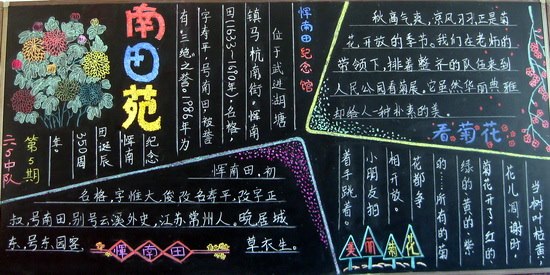 南田苑
第5期
二(5)中队
恽南田纪念馆
位于武进湖塘
镇马杭南街。恽南
田(1633—1690年),名格,
字寿平,号南田,被誉
有“三绝”之誉。1986年为
纪念
恽南
田诞辰
350周
年。
恽南田,初
名格,字惟大,改名寿平,改字正
叔,号南田,别号云溪外史,江苏常州人。晚居城
东,号东园客、草衣生。
恽南田
秋高气爽,凉风习习,正是菊
花开放的季节。我们在老师的
带领下,排着整齐的队伍来到
人民公园看菊展。它虽然华典雅
却给人一种朴素的美。
看菊花
当树叶枯黄,
花儿凋谢时,
菊花开了红的
绿的黄的紫
的……所有的菊
花都争
相开放。
小朋友拍
着手跳着。
美丽菊花